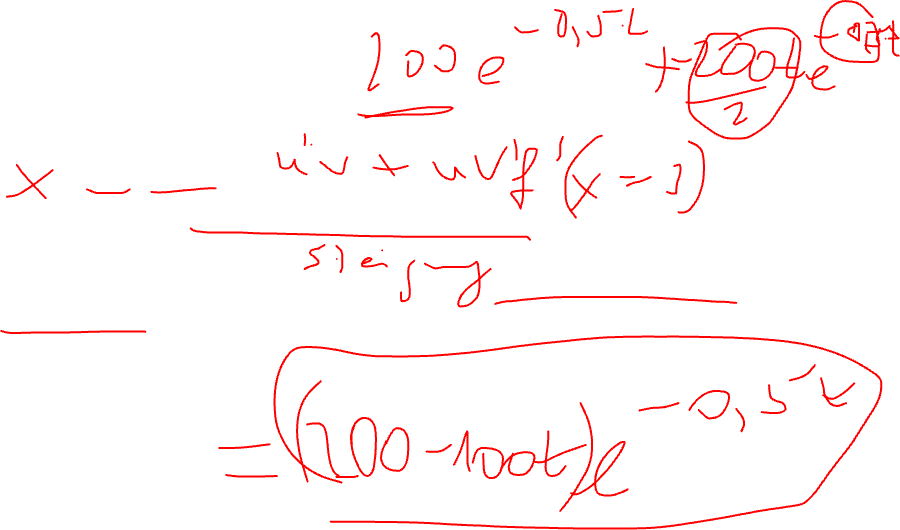 200 e^{-0,5t} + \frac{-200t}{2} e^{-0,5t}
x - - u'v + uv' f'(x = 3)
Steigung
= (200 - 100t) e^{-0,5t}